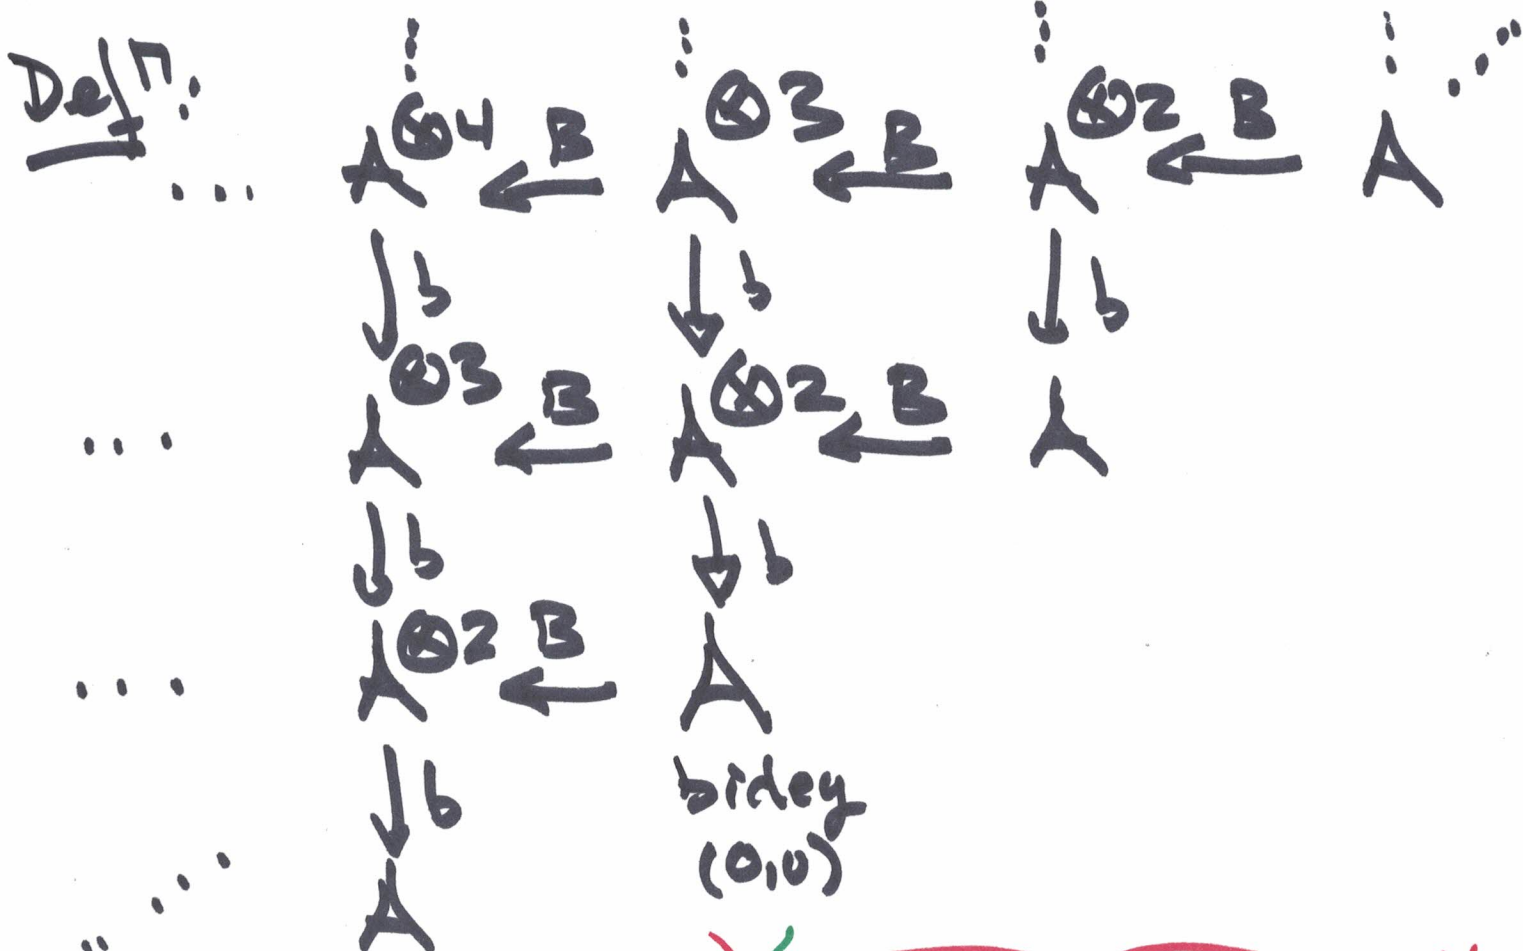 Defⁿ:
⋮ ⋮ ⋮ ⋮ ⋰
... A⊗4 ←B A⊗3 ←B A⊗2 ←B A
↓b ↓b ↓b
... A⊗3 ←B A⊗2 ←B A
↓b ↓b
... A⊗2 ←B A
↓b bideg
(0,0)
⋰ A